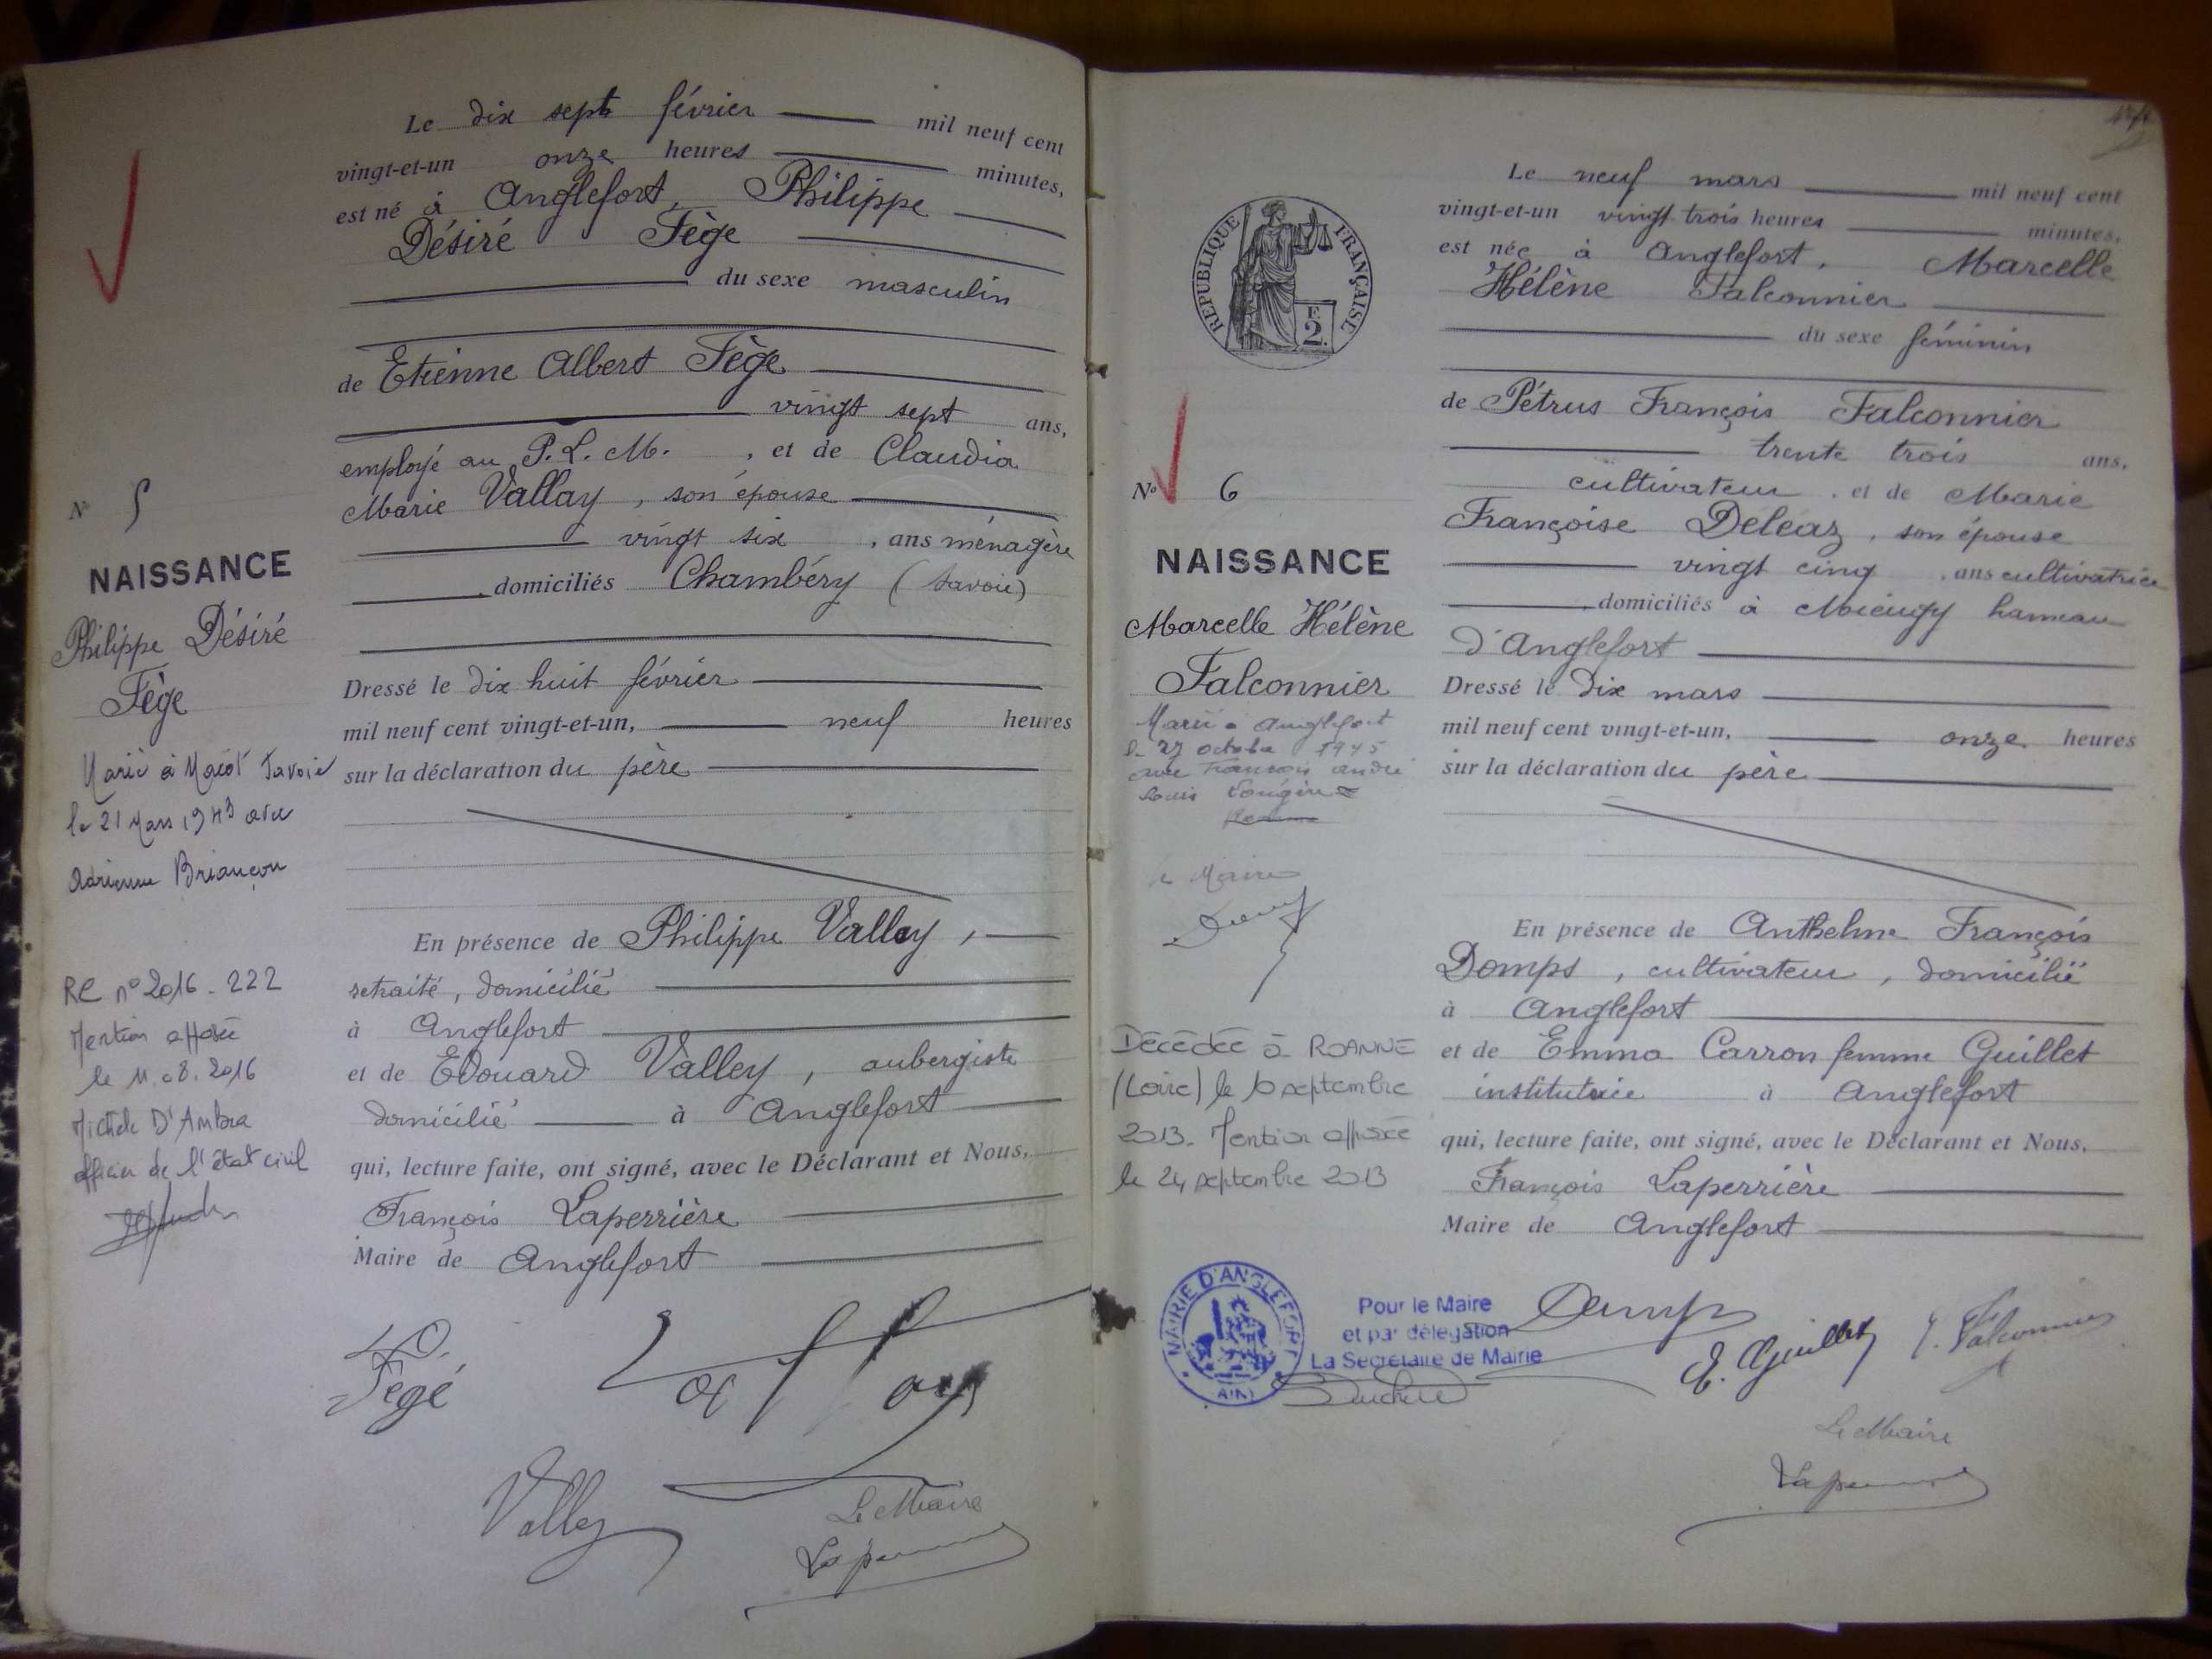 Le dix sept février mil neuf cent
vingt-et-un onze heures minutes,
est né à Anglefort, Philippe
Désiré Fège
du sexe masculin
de Etienne Albert Fège
vingt sept ans,
employé au P.L.M. , et de Claudia
Marie Vallay, son épouse
vingt six , ans ménagère
domiciliés Chambéry (Savoie)
Dressé le dix huit février
mil neuf cent vingt-et-un, neuf heures
sur la déclaration du père
En présence de Philippe Valley,
retraité, domicilié
à Anglefort
et de Edouard Valley, aubergiste
domicilié à Anglefort
qui, lecture faite, ont signé, avec le Déclarant et Nous,
François Laperrière
Maire de Anglefort
Fégé
Valley
Le Maire
N° 5
NAISSANCE
Philippe Désiré
Fège
Marié à Macôt Savoie
le 21 Mars 1943 avec
Adrienne Briançon
RC n° 2016-222
Mention apposée
le 11.08.2016
Michèle D'Ambra
officier de l'état civil
Le neuf mars mil neuf cent
vingt-et-un vingt trois heures minutes,
est née à Anglefort, Marcelle
Hélène Falconnier
du sexe féminin
de Pétrus François Falconnier
trente trois ans,
cultivateur, et de Marie
Françoise Deléaz, son épouse
vingt cinq , ans cultivatrice
domiciliés à hameau
d'Anglefort
Dressé le dix mars
mil neuf cent vingt-et-un, onze heures
sur la déclaration du père
En présence de Anthelme François
Domps, cultivateur, domicilié
à Anglefort
et de Emma Carron femme Guillet
institutrice à Anglefort
qui, lecture faite, ont signé, avec le Déclarant et Nous,
François Laperrière
Maire de Anglefort
E. Guillet
Falconnier
Le Maire
REPUBLIQUE FRANÇAISE
F.
2.
N° 6
NAISSANCE
Marcelle Hélène
Falconnier
Marié à Anglefort
le 27 octobre 1945
avec François André
Louis
le Maire
Décédée à ROANNE
(Loire) le 10 septembre
2013. Mention apposée
le 24 septembre 2013
MAIRIE D'ANGLEFORT
(AIN)
Pour le Maire
et par délégation
La Secrétaire de Mairie